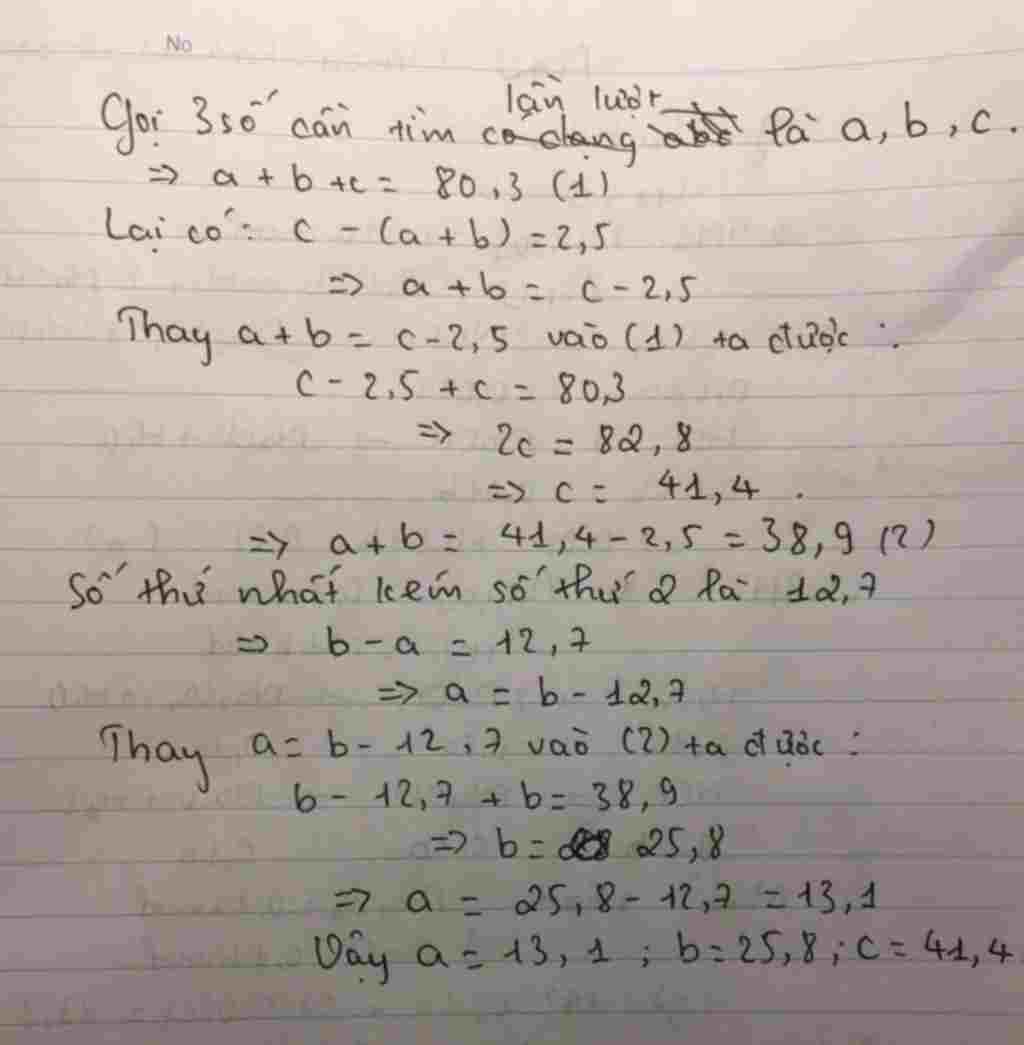 No
Gọi 3 số cần tìm có dạng abc lần lượt là a, b, c.
=> a + b + c = 80,3 (1)
Lại có: c - (a + b) = 2,5
=> a + b = c - 2,5
Thay a + b = c - 2,5 vào (1) ta được :
c - 2,5 + c = 80,3
=> 2c = 82,8
=> c = 41,4 .
=> a + b = 41,4 - 2,5 = 38,9 (2)
Số thứ nhất kém số thứ 2 là 12,7
=> b - a = 12,7
=> a = b - 12,7
Thay a = b - 12,7 vào (2) ta được :
b - 12,7 + b = 38,9
=> b = 25,8
=> a = 25,8 - 12,7 = 13,1
Vậy a = 13,1 ; b = 25,8 ; c = 41,4